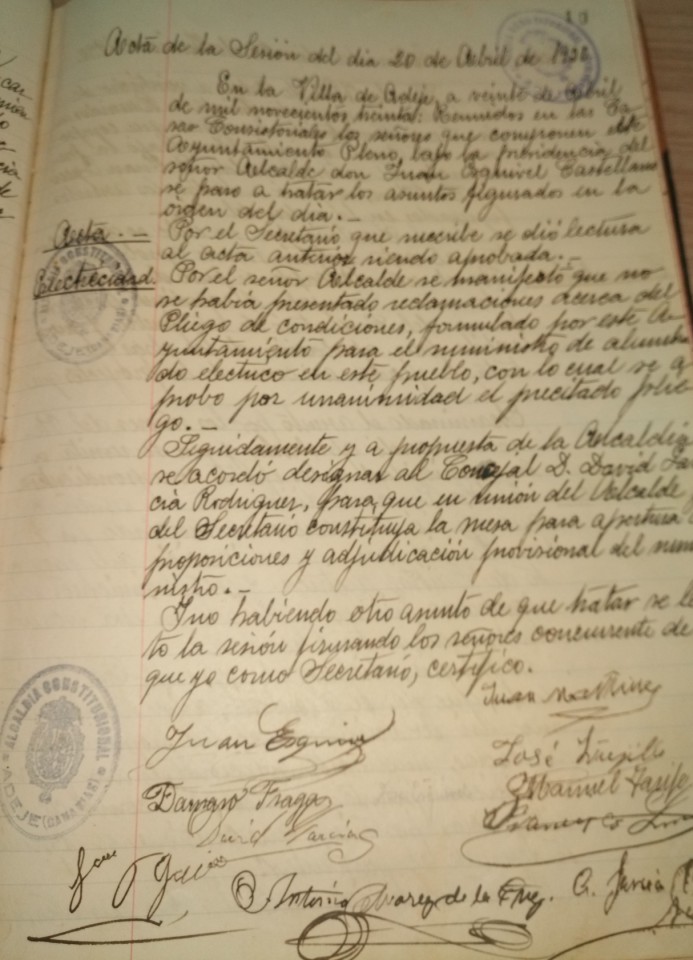 10
Acta de la Sesión del dia 20 de Abril de 1930
En la Villa de Adeje, a veinte de Abril
de mil novecientos treinta: Reunidos en las Ca-
sas Consistoriales los señores que componen este
Ayuntamiento Pleno, bajo la presidencia del
señor Alcalde don Juan Esquivel Castellano
se paso a tratar los asuntos figurados en la
orden del dia. -
Acta. - - Por el Secretario que suscribe se dió lectura
al acta anterior siendo aprobada. -
Electricidad. Por el señor Alcalde se manifestó que no
se había presentado reclamaciones acerca del
Pliego de condiciones, formulado por este A-
yuntamiento para el suministro de alumbra
do electrico en este pueblo, con lo cual se a
probo por unanimidad el precitado plie-
go. -
Seguidamente y a propuesta de la Alcaldia
se acordó designar al Concejal D. David Gar
cia Rodriguez, para que en unión del Alcalde
del Secretario constituya la mesa para apertura
proposiciones y adjudicación provisional del sumi
nistro. -
Y no habiendo otro asunto de que tratar se le
to la sesión firmando los señores concurrente de
que yo como Secretario, certifico.
Juan Martinez
Juan Esquivel
José Trujillo
Damaso Fraga
Manuel
David García
Francisco
Antonio Alvarez de la
G. García
ALCALDIA CONSTITUCIONAL
ADEJE (CANARIAS)